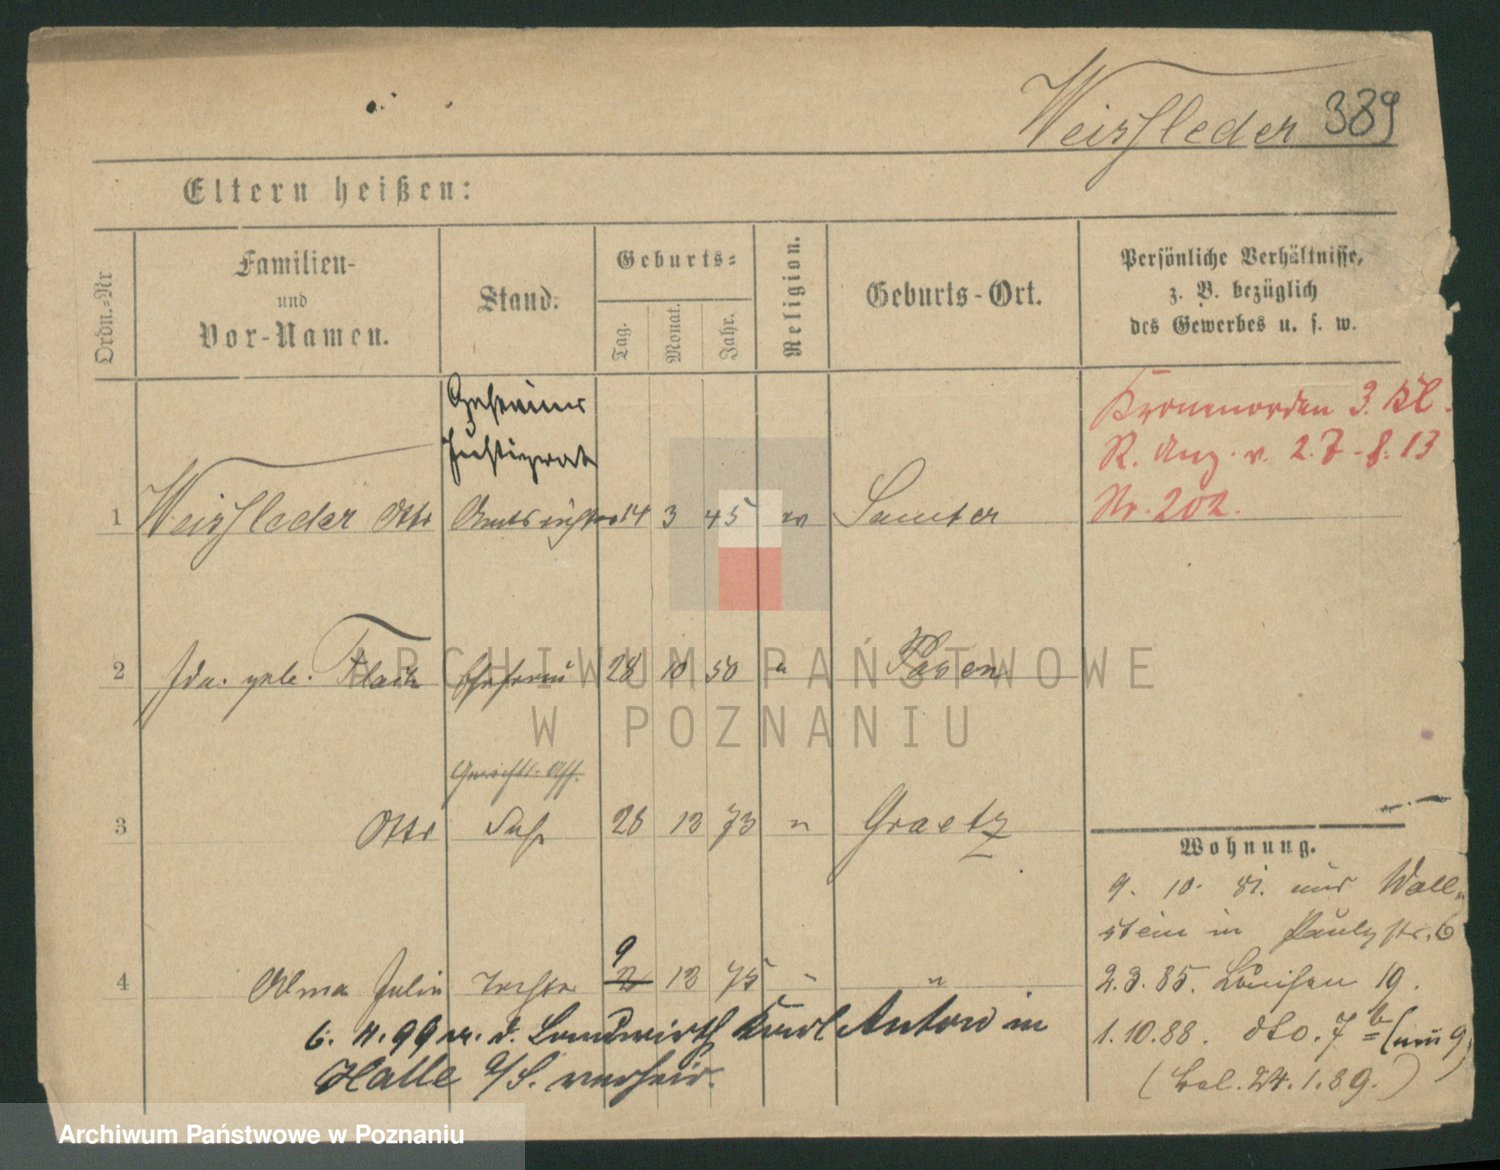 Weissleder 389
Eltern heißen:
Ordn.-Nr
Familien-
und
Vor-Namen.
Stand.
Geburts-
Tag.
Monat.
Jahr.
Religion.
Geburts-Ort.
Persönliche Verhältnisse,
z. B. bezüglich
des Gewerbes u. s. w.
Geheimer
Justizrat
Kronenorden 3. Kl.
R. Anz. v. 2.7-8.13
Nr. 202.
1 Weissleder Otto Amtsrichter 14 3 45 Samter
2 Ida geb. Ehefrau 28 10 50 " Posen
ARCHIWUM PAŃSTWOWE
W POZNANIU
Gerichts-Ass.
3 Otto Sohn 28 12 73 " Graetz
Wohnung.
9. 10. 81. aus Woll-
stein in Paulystr. 6
9
4 Alma Julia Tochter 12 75 " "
2.3.85. Louisen 19.
6. 4. 99 m. d. Landwirth Karl Anton in
1.10.88. dto. 7b (nun 9)
Halle a/S. verheir.
(Bel. 24.1.89.)
Archiwum Państwowe w Poznaniu